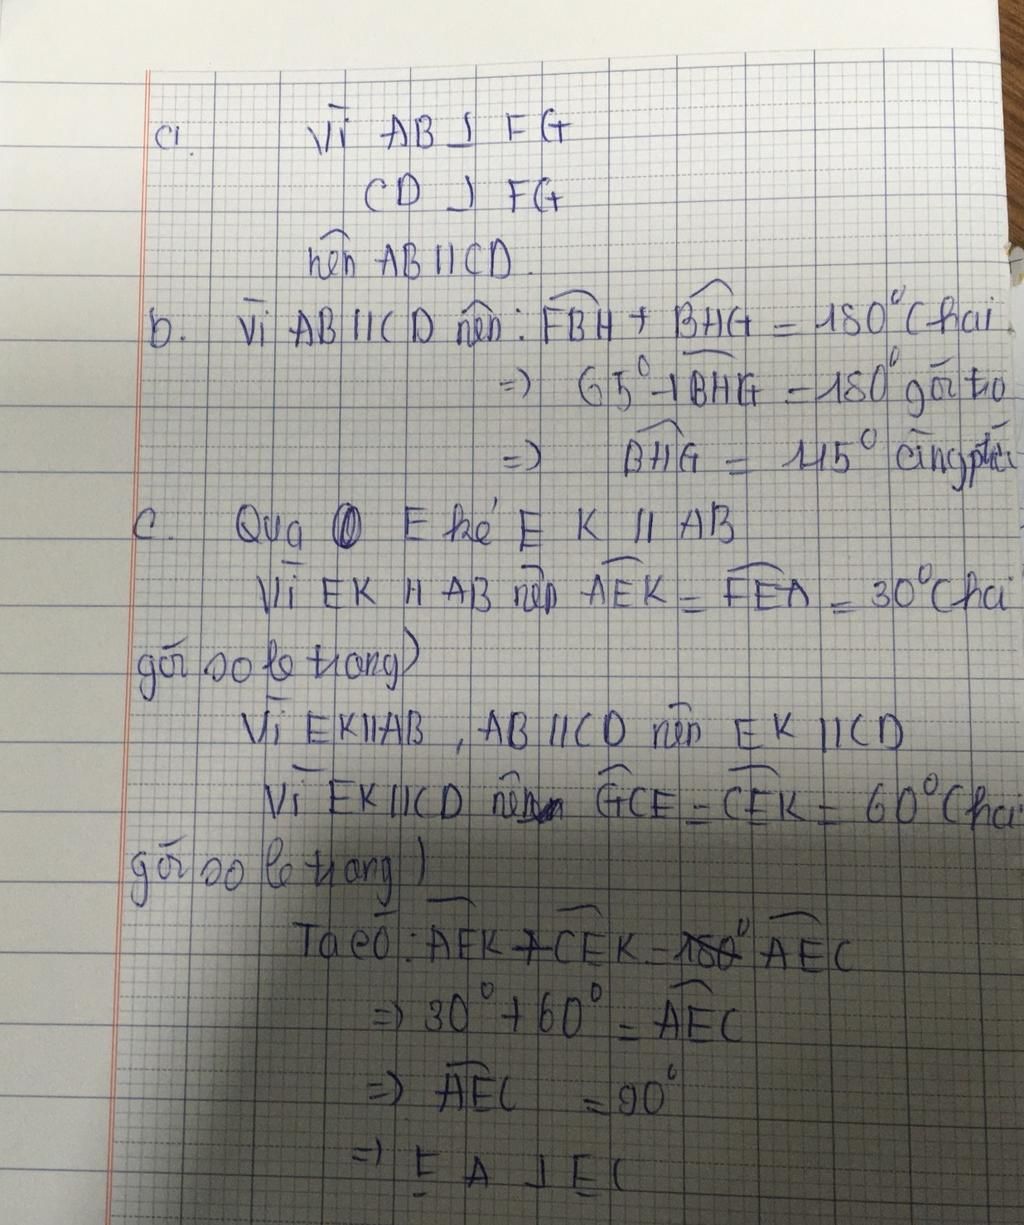 a. Vì AB ⊥ FG
CD ⊥ FG
nên AB // CD.
b. Vì AB // CD nên: FBH + BHG = 180° (hai
=> 65° + BHG = 180° góc tro
=> BHG = 115° cùng phía
c. Qua E kẻ E K // AB
Vì EK // AB nên AEK = FEA = 30° (hai
góc so le trong)
Vì EK // AB, AB // CD nên EK // CD
Vì EK // CD nên GCE = CEK = 60° (hai
góc so le trong)
Ta có: AEK + CEK = AEC
=> 30° + 60° = AEC
=> AEC = 90°
=> E A ⊥ E C